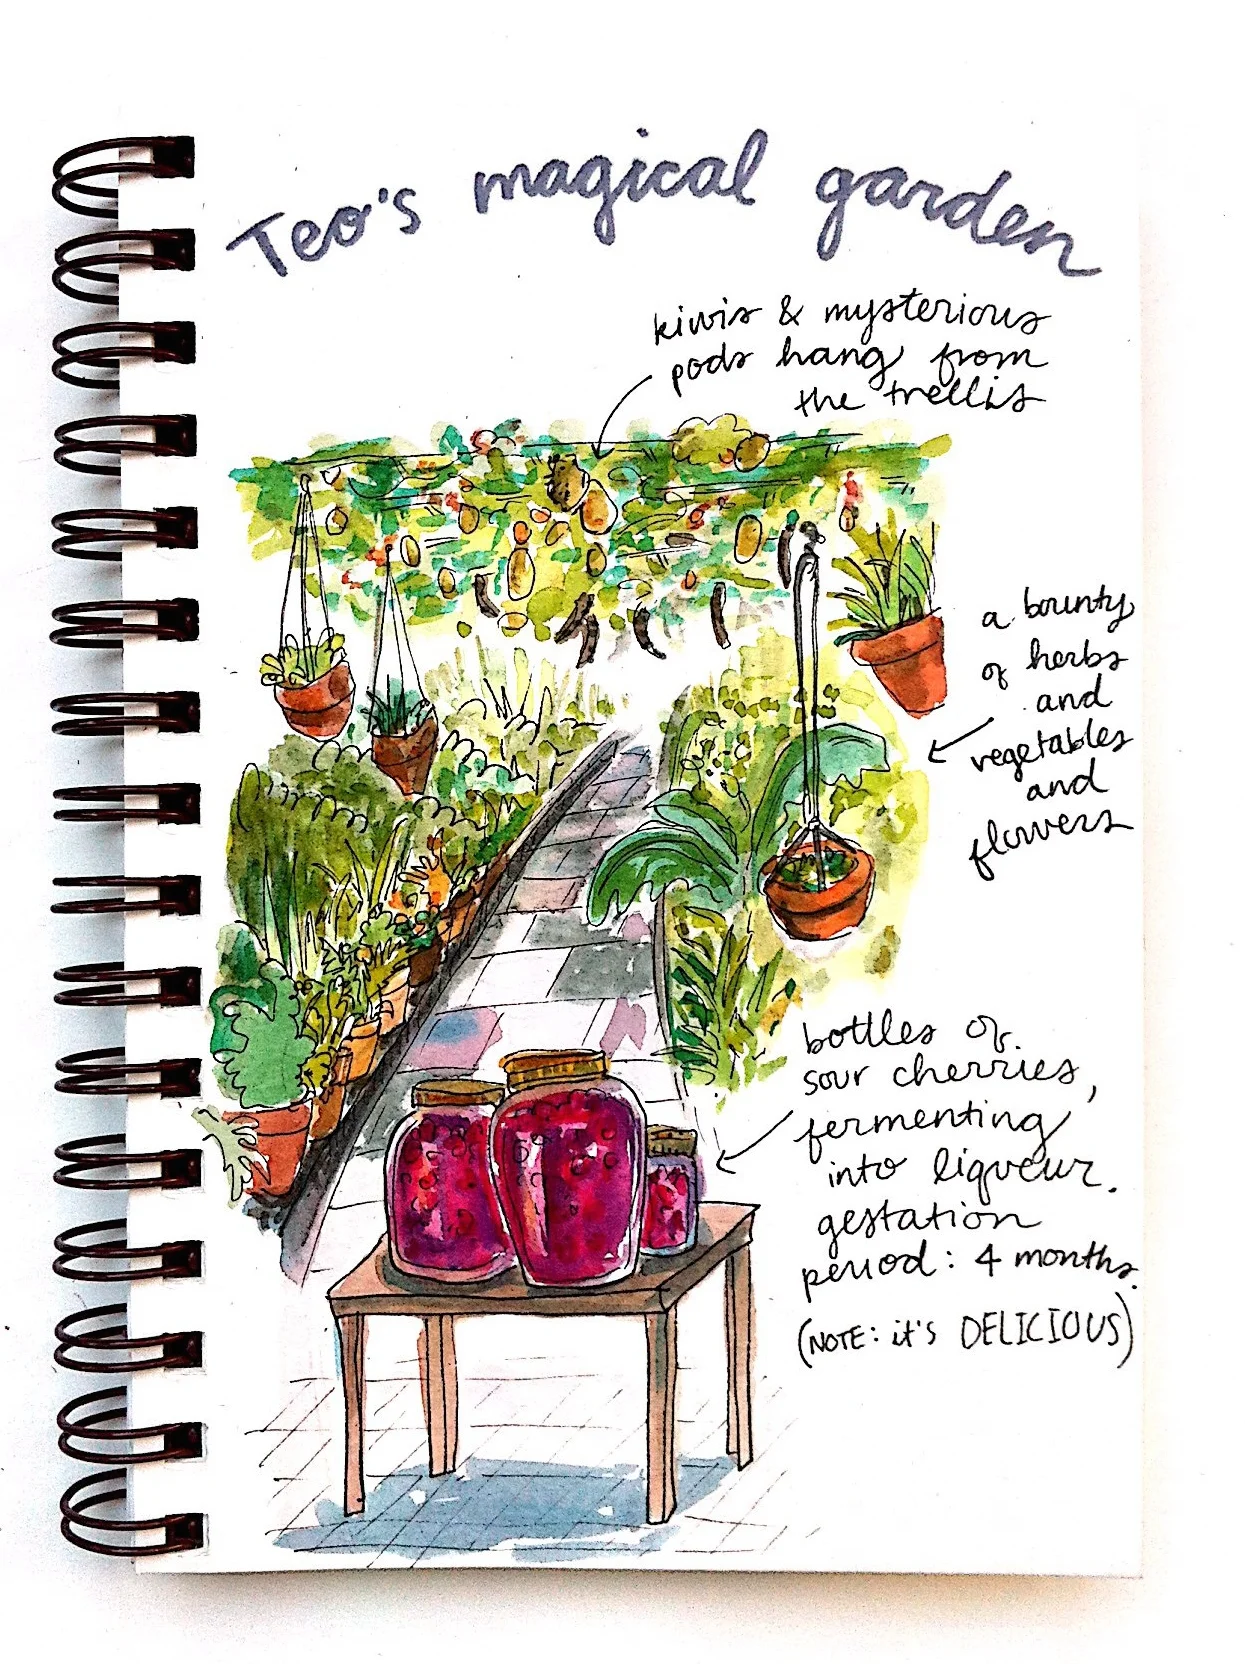 Teo's magical garden
kiwis & mysterious
pods hang from
the trellis
a bounty
of herbs
and
vegetables
and
flowers
bottles of
sour cherries,
fermenting
into liqueur.
gestation
period: 4 months.
(NOTE: it's DELICIOUS)